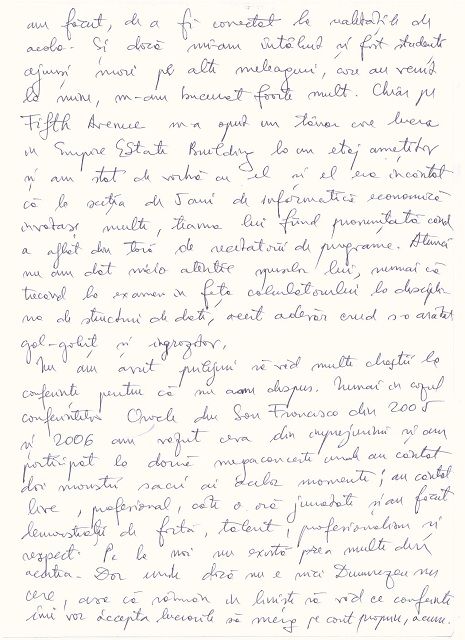 am făcut, de a fi conectat la realitățile de
acolo. Și dacă mi-am întâlnit și foști studenți
ajunși mari pe alte meleaguri, care au venit
la mine, m-am bucurat foarte mult. Chiar pe
Fifth Avenue m-a oprit un tânăr care lucra
in Empire State Building la un etaj amețitor
și am stat de vorbă cu el și el era încântat
că la secția de 5 ani de informatică economică
învățase multe, teama lui fiind pronunțată când
a aflat din țară de recitatorii de programe. Atunci
nu am dat nicio atenție spuselor lui, numai că
trecând la examen in fața calculatorului la discipli-
na de structuri de date, acest adevăr crud s-a arătat
gol-goluț și îngrozitor.
Nu am avut prilejuri să văd multe chestii la
conferințe pentru că nu aam dispus. Numai in cazul
conferințelor Oracle din San Francisco din 2005
și 2006 am văzut ceva din împrejurimi și am
participat la două megaconcerte unde au cântat
doi monștri sacri ai acelor momente; au cântat
live, profesional, câte o oră jumătate și au făcut
demonstrații de forță, talent, profesionalism și
respect. Pe la noi nu există prea multe din
acestea. Dar unde dacă nu e nici Dumnezeu nu
cere, așa că rămân in liniște să văd ce conferințe
îmi vor accepta lucrările să merg pe cont propriu, acum.